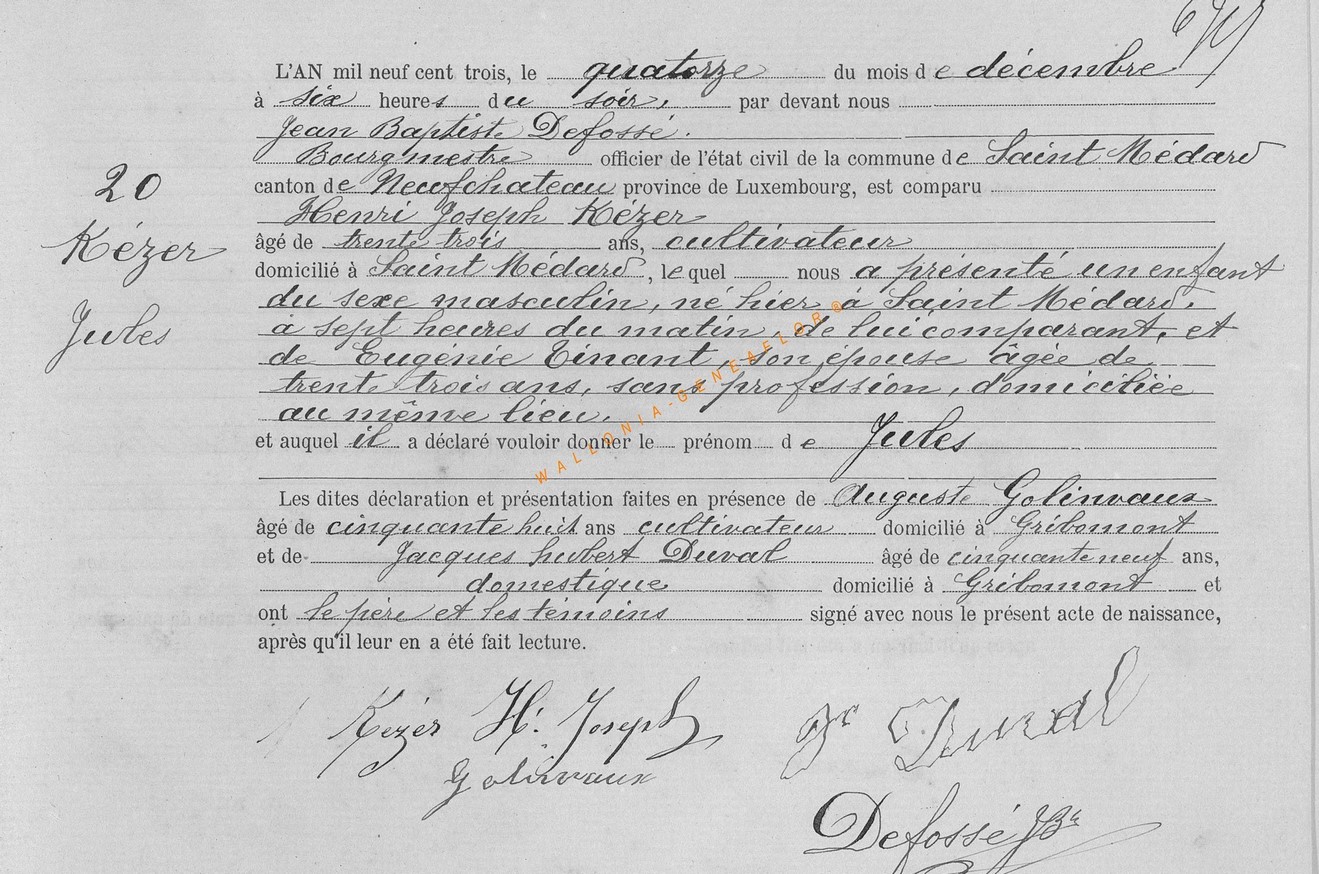 L'AN mil neuf cent trois, le quatorze du mois de décembre
à six heures du soir, par devant nous
Jean Baptiste Defossé.
Bourgmestre officier de l'état civil de la commune de Saint Médard
canton de Neufchateau province de Luxembourg, est comparu
Henri Joseph Kézer
âgé de trente trois ans, cultivateur
domicilié à Saint Médard, lequel nous a présenté un enfant
du sexe masculin, né hier à Saint Médard,
à sept heures du matin, de lui comparant, et
de Eugénie Tinant, son épouse âgée de
trente trois ans, sans profession, domiciliée
au même lieu.
et auquel il a déclaré vouloir donner le prénom de Jules
Les dites déclaration et présentation faites en présence de Auguste Golinvaux
âgé de cinquante huit ans cultivateur domicilié à Gribomont
et de Jacques hubert Duval âgé de cinquante neuf ans,
domestique domicilié à Gribomont et
ont le père et les témoins signé avec nous le présent acte de naissance,
après qu'il leur en a été fait lecture.
20
Kézer
Jules
Kézer H. Joseph
Golinvaux
Duval
Defossé JBte
WALLONIA-GENEAFLOR®